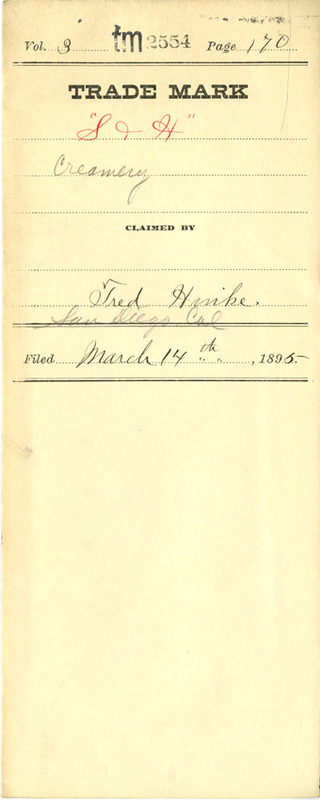 Vol. 3 tm 2554 Page 170
TRADE MARK
"S & H"
Creamery
CLAIMED BY
Fred Hinke.
San Diego Cal
Filed March 14th " " , 1895.